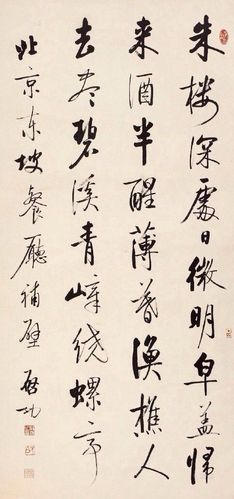 朱楼深處日微明皁盖归
来酒半醒薄暮渔樵人
去尽碧溪青嶂绕螺亭
北京东坡餐廳補壁 啓功